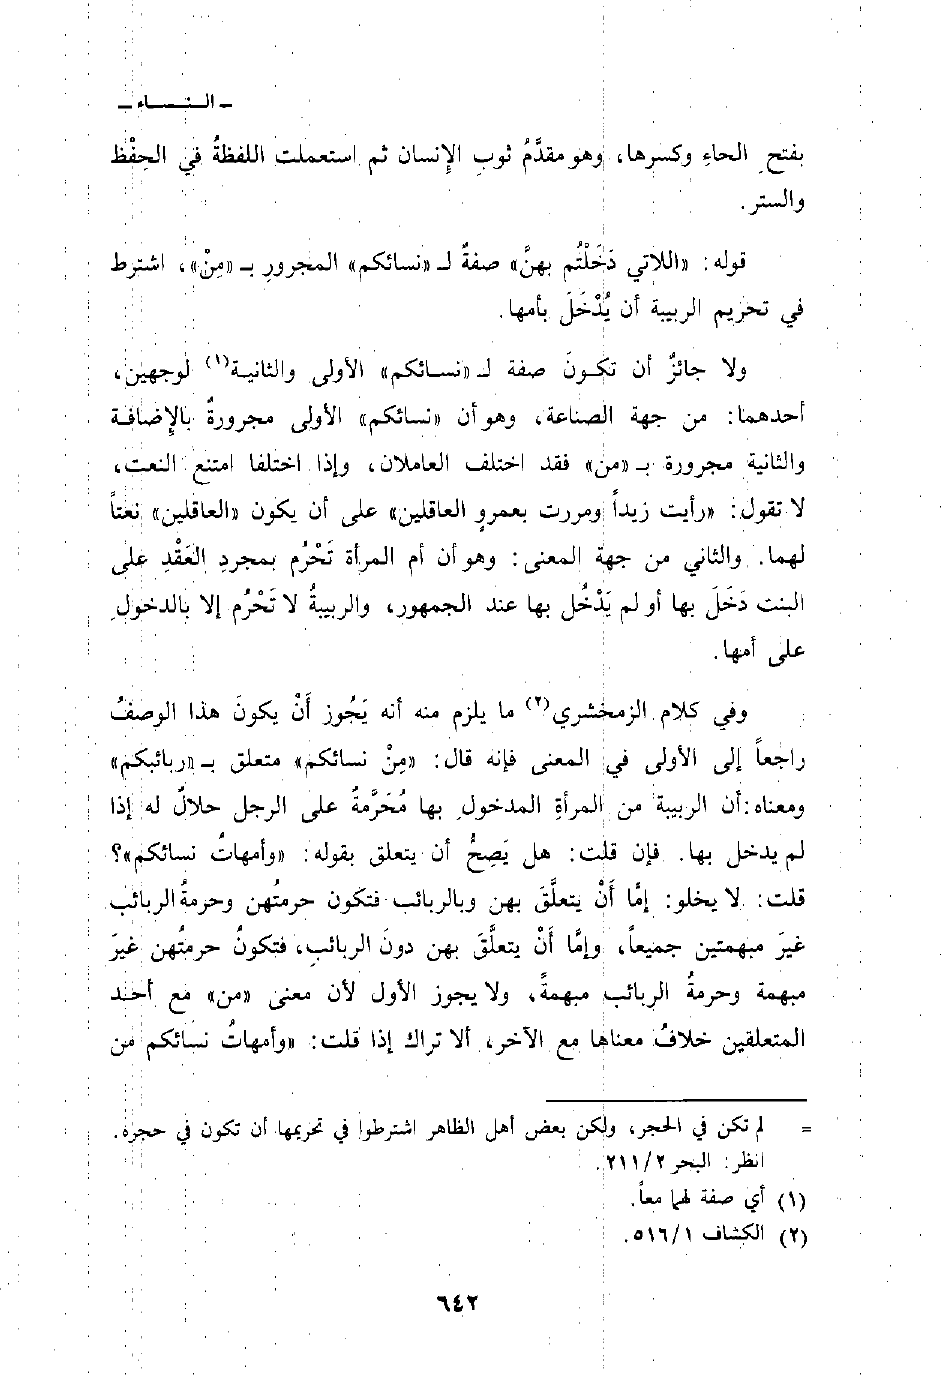 ـ النساء ـ
بفتح الحاءِ وكسرها، وهو مقدَّمُ ثوبِ الإنسان ثم استعملت اللفظةُ في الحِفْظ
والستر.
قوله: «اللاتي دَخَلْتُم بهنَّ» صفةٌ لـ «نسائكم» المجرورِ بـ «مِنْ»، اشترط
في تحريم الربيبة أن يُدْخَلَ بأمها.
ولا جائزٌ أن تكونَ صفة لـ «نسائكم» الأولى والثانية(١) لوجهين،
أحدهما: من جهة الصناعة، وهو أن «نسائكم» الأولى مجرورةٌ بالإضافة
والثانية مجرورة بـ «من» فقد اختلف العاملان، وإذا اختلفا امتنع النعت،
لا تقول: «رأيت زيداً ومررت بعمرٍو العاقلين» على أن يكون «العاقلين» نعتاً
لهما. والثاني من جهة المعنى: وهو أن أم المرأة تَحْرُم بمجردِ العَقْدِ على
البنت دَخَلَ بها أو لم يَدْخُل بها عند الجمهور، والربيبةُ لا تَحْرُم إلا بالدخولِ
على أمها.
وفي كلام الزمخشري(٢) ما يلزم منه أنه يَجُوز أَنْ يكونَ هذا الوصفُ
راجعاً إلى الأولى في المعنى فإنه قال: «مِنْ نسائكم» متعلق بـ «ربائبكم»
ومعناه:أن الربيبة من المرأةِ المدخولِ بها مُحَرَّمةٌ على الرجل حلالٌ له إذا
لم يدخل بها. فإن قلت: هل يَصِحُّ أن يتعلق بقوله: «وأمهاتُ نسائكم»؟
قلت: لا يخلو: إمَّا أَنْ يتعلَّقَ بهن وبالربائب فتكون حرمتُهن وحرمةُ الربائب
غيرَ مبهمتين جميعاً، وإمَّا أَنْ يتعلَّقَ بهن دونَ الربائبِ، فتكونُ حرمتُهن غيرَ
مبهمة وحرمةُ الربائب مبهمةً، ولا يجوز الأول لأن معنى «من» مع أحد
المتعلقين خلافُ معناها مع الآخر، ألا تراك إذا قلت: «وأمهاتُ نسائكم من
= لم تكن في الحجر، ولكن بعض أهل الظاهر اشترطوا في تحريمها أن تكون في حجره.
انظر: البحر ٢١١/٢.
(١) أي صفة لهما معاً.
(٢) الكشاف ٥١٦/١.
٦٤٢